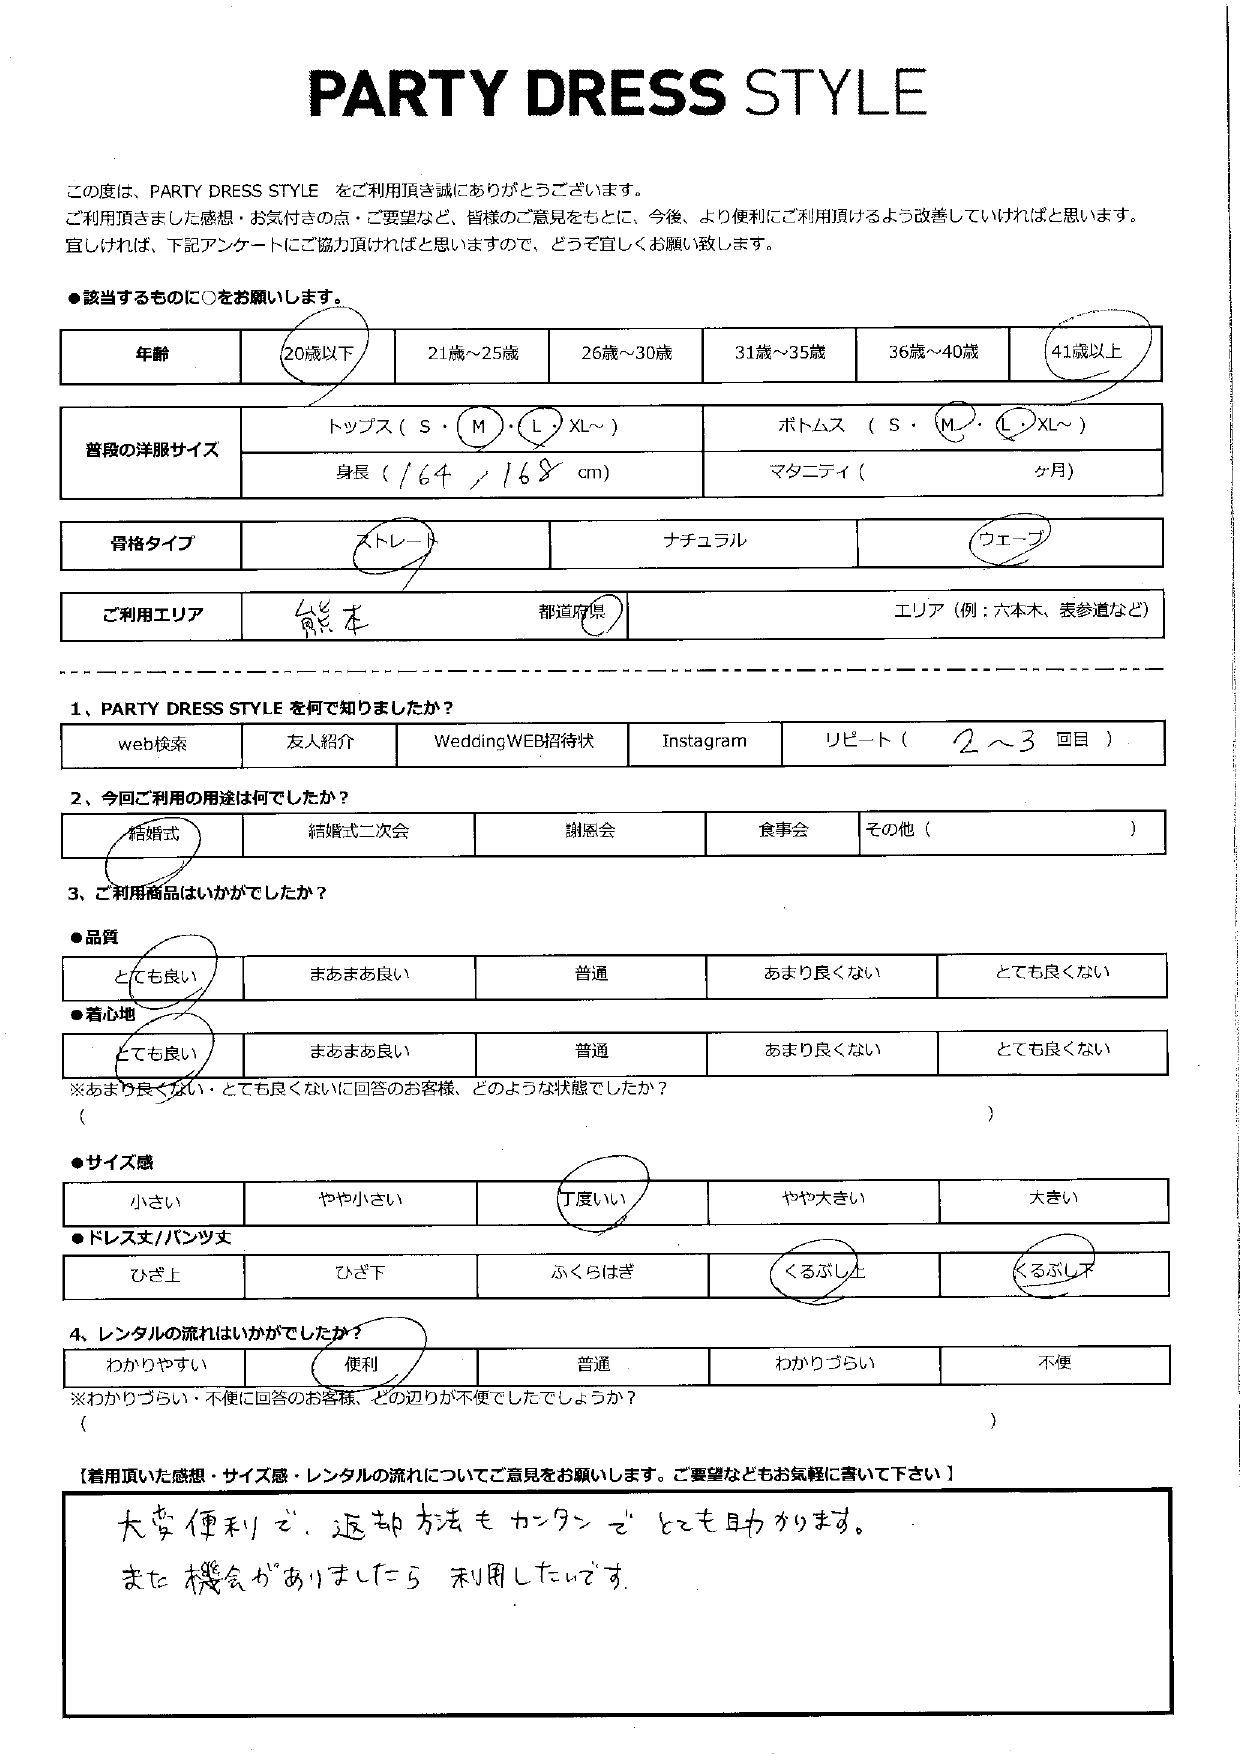 PARTY DRESS STYLE
この度は、PARTY DRESS STYLE をご利用頂き誠にありがとうございます。
ご利用頂きました感想・お気付きの点・ご要望など、皆様のご意見をもとに、今後、より便利にご利用頂けるよう改善していければと思います。
宜しければ、下記アンケートにご協力頂ければと思いますので、どうぞ宜しくお願い致します。
●該当するものに○をお願いします。
年齢 20歳以下 21歳～25歳 26歳～30歳 31歳～35歳 36歳～40歳 41歳以上
普段の洋服サイズ
トップス ( S ・ M ・ L ・ XL～ ) ボトムス ( S ・ M ・ L ・ XL～ )
身長 ( 164 / 168 cm) マタニティ ( ケ月)
骨格タイプ ストレート ナチュラル ウェーブ
ご利用エリア 熊本 都道府県 エリア（例：六本木、表参道など）
1、PARTY DRESS STYLE を何で知りましたか？
web検索 友人紹介 WeddingWEB招待状 Instagram リピート ( 2～3 回目 )
2、今回ご利用の用途は何でしたか？
結婚式 結婚式二次会 謝恩会 食事会 その他 ( )
3、ご利用商品はいかがでしたか？
●品質
とても良い まあまあ良い 普通 あまり良くない とても良くない
●着心地
とても良い まあまあ良い 普通 あまり良くない とても良くない
※あまり良くない・とても良くないに回答のお客様、どのような状態でしたか？
( )
●サイズ感
小さい やや小さい 丁度いい やや大きい 大きい
●ドレス丈/パンツ丈
ひざ上 ひざ下 ふくらはぎ くるぶし上 くるぶし下
4、レンタルの流れはいかがでしたか？
わかりやすい 便利 普通 わかりづらい 不便
※わかりづらい・不便に回答のお客様、どの辺りが不便でしたでしょうか？
( )
【着用頂いた感想・サイズ感・レンタルの流れについてご意見をお願いします。ご要望などもお気軽に書いて下さい 】
大変便利で、返却方法もカンタンでとても助かります。
また機会がありましたら 利用したいです.